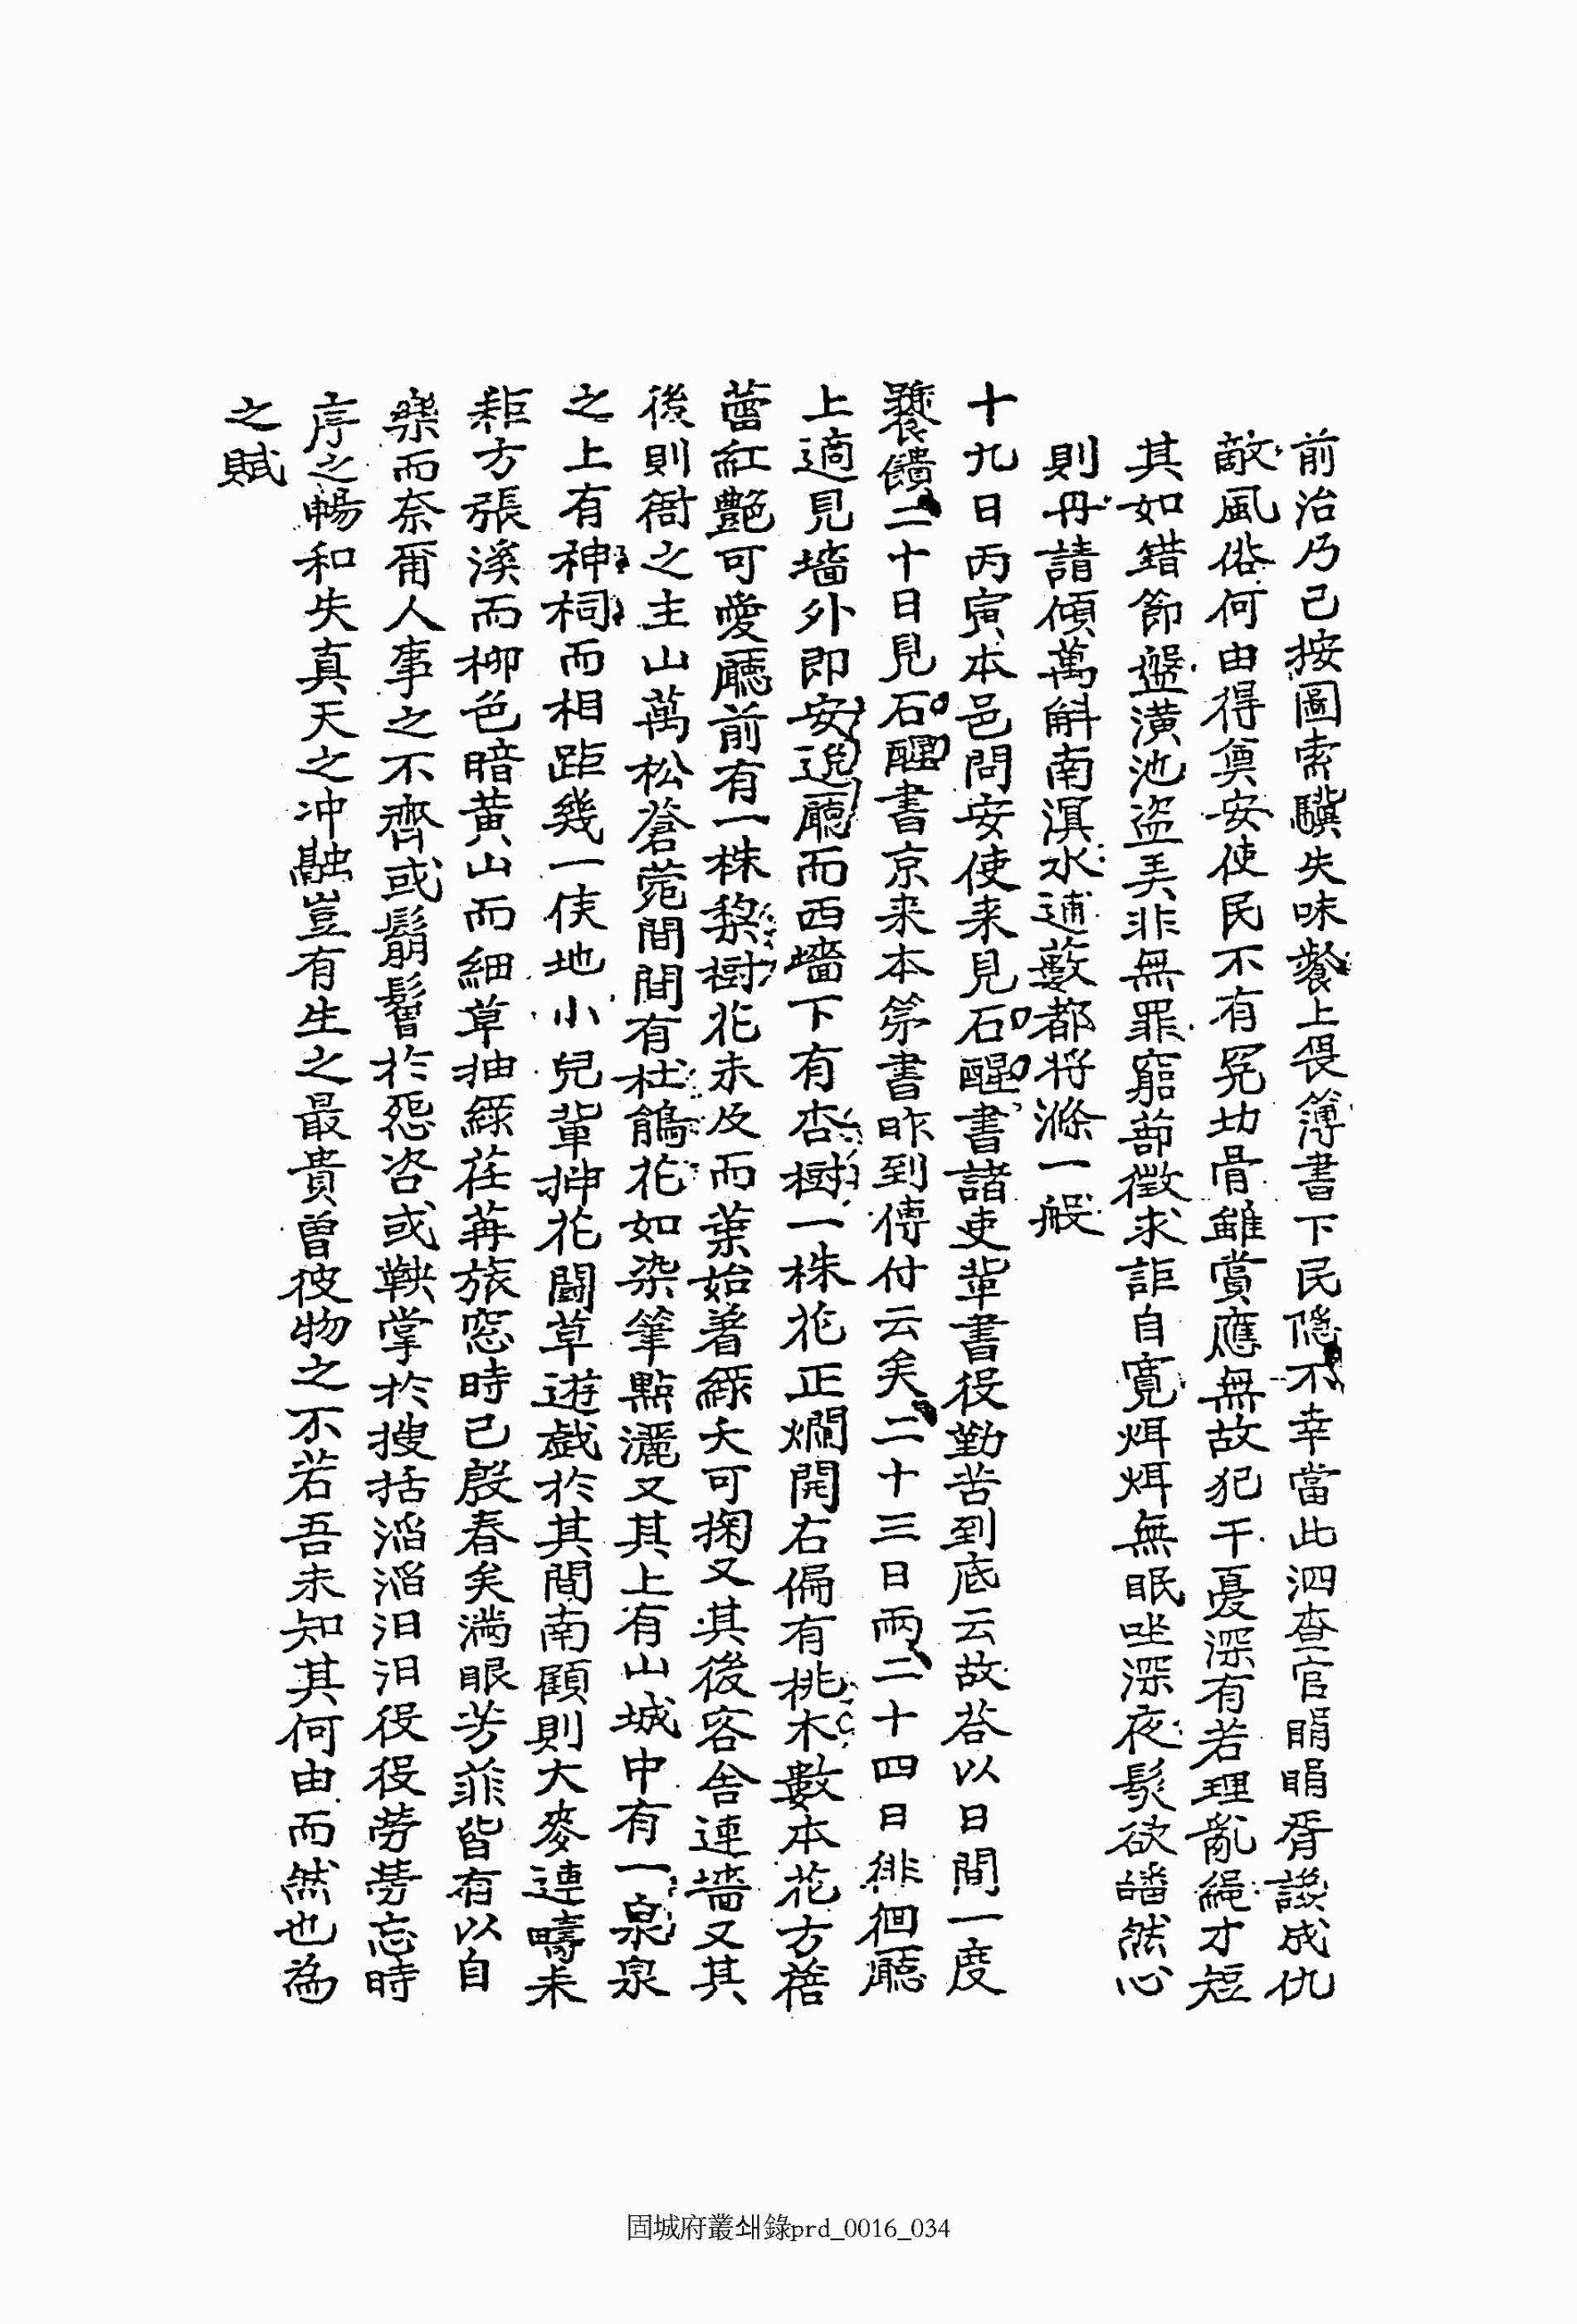 前治乃已按圖索驥失味餮上畏簿書下民隱不幸當此泗查官睊睊胥讒成仇
敵風俗何由得奠安使民不有冤功骨雖賞應無故犯干憂深有若理亂繩才短
其如錯節盤潢池盜美非無罪窮蔀徵求詎自寬炯炯無眠坐深夜髮欲皤然心
則丹請傾萬斛南溟水逋藪都将滌一般
十九日丙寅本邑問安使来見石醒書諸吏軰書役勤苦到底云故答以日間一度
饔饋二十日見石醒書京来本第書昨到傳付云矣二十三日雨二十四日徘徊廳
上適見墻外即安逸廳而西墻下有杏樹一株花正爛開右偏有桃木數本花方蓓
蕾紅艷可愛廳前有一株梨樹花未及而葉始着綠夭可掬又其後客舍連墻又其
後則衙之主山萬松蒼菀間間有杜鵑花如染筆點灑又其上有山城中有一泉泉
之上有神祠而相距幾一俟地小兒軰抻花鬪草遊戱於其間南顧則大麥連疇耒
耟方張溪而柳色暗黃山而細草抽綠荏苒旅窓時已殷春矣滿眼芳菲皆有以自
樂而奈爾人事之不齊或鬅鬙於怨咨或鞅掌於搜括滔滔汨汨役役勞勞忘時
序之暢和失真天之冲融豈有生之最貴曽彼物之不若吾未知其何由而然也為
之賦
固城府叢쇄錄prd_0016_034